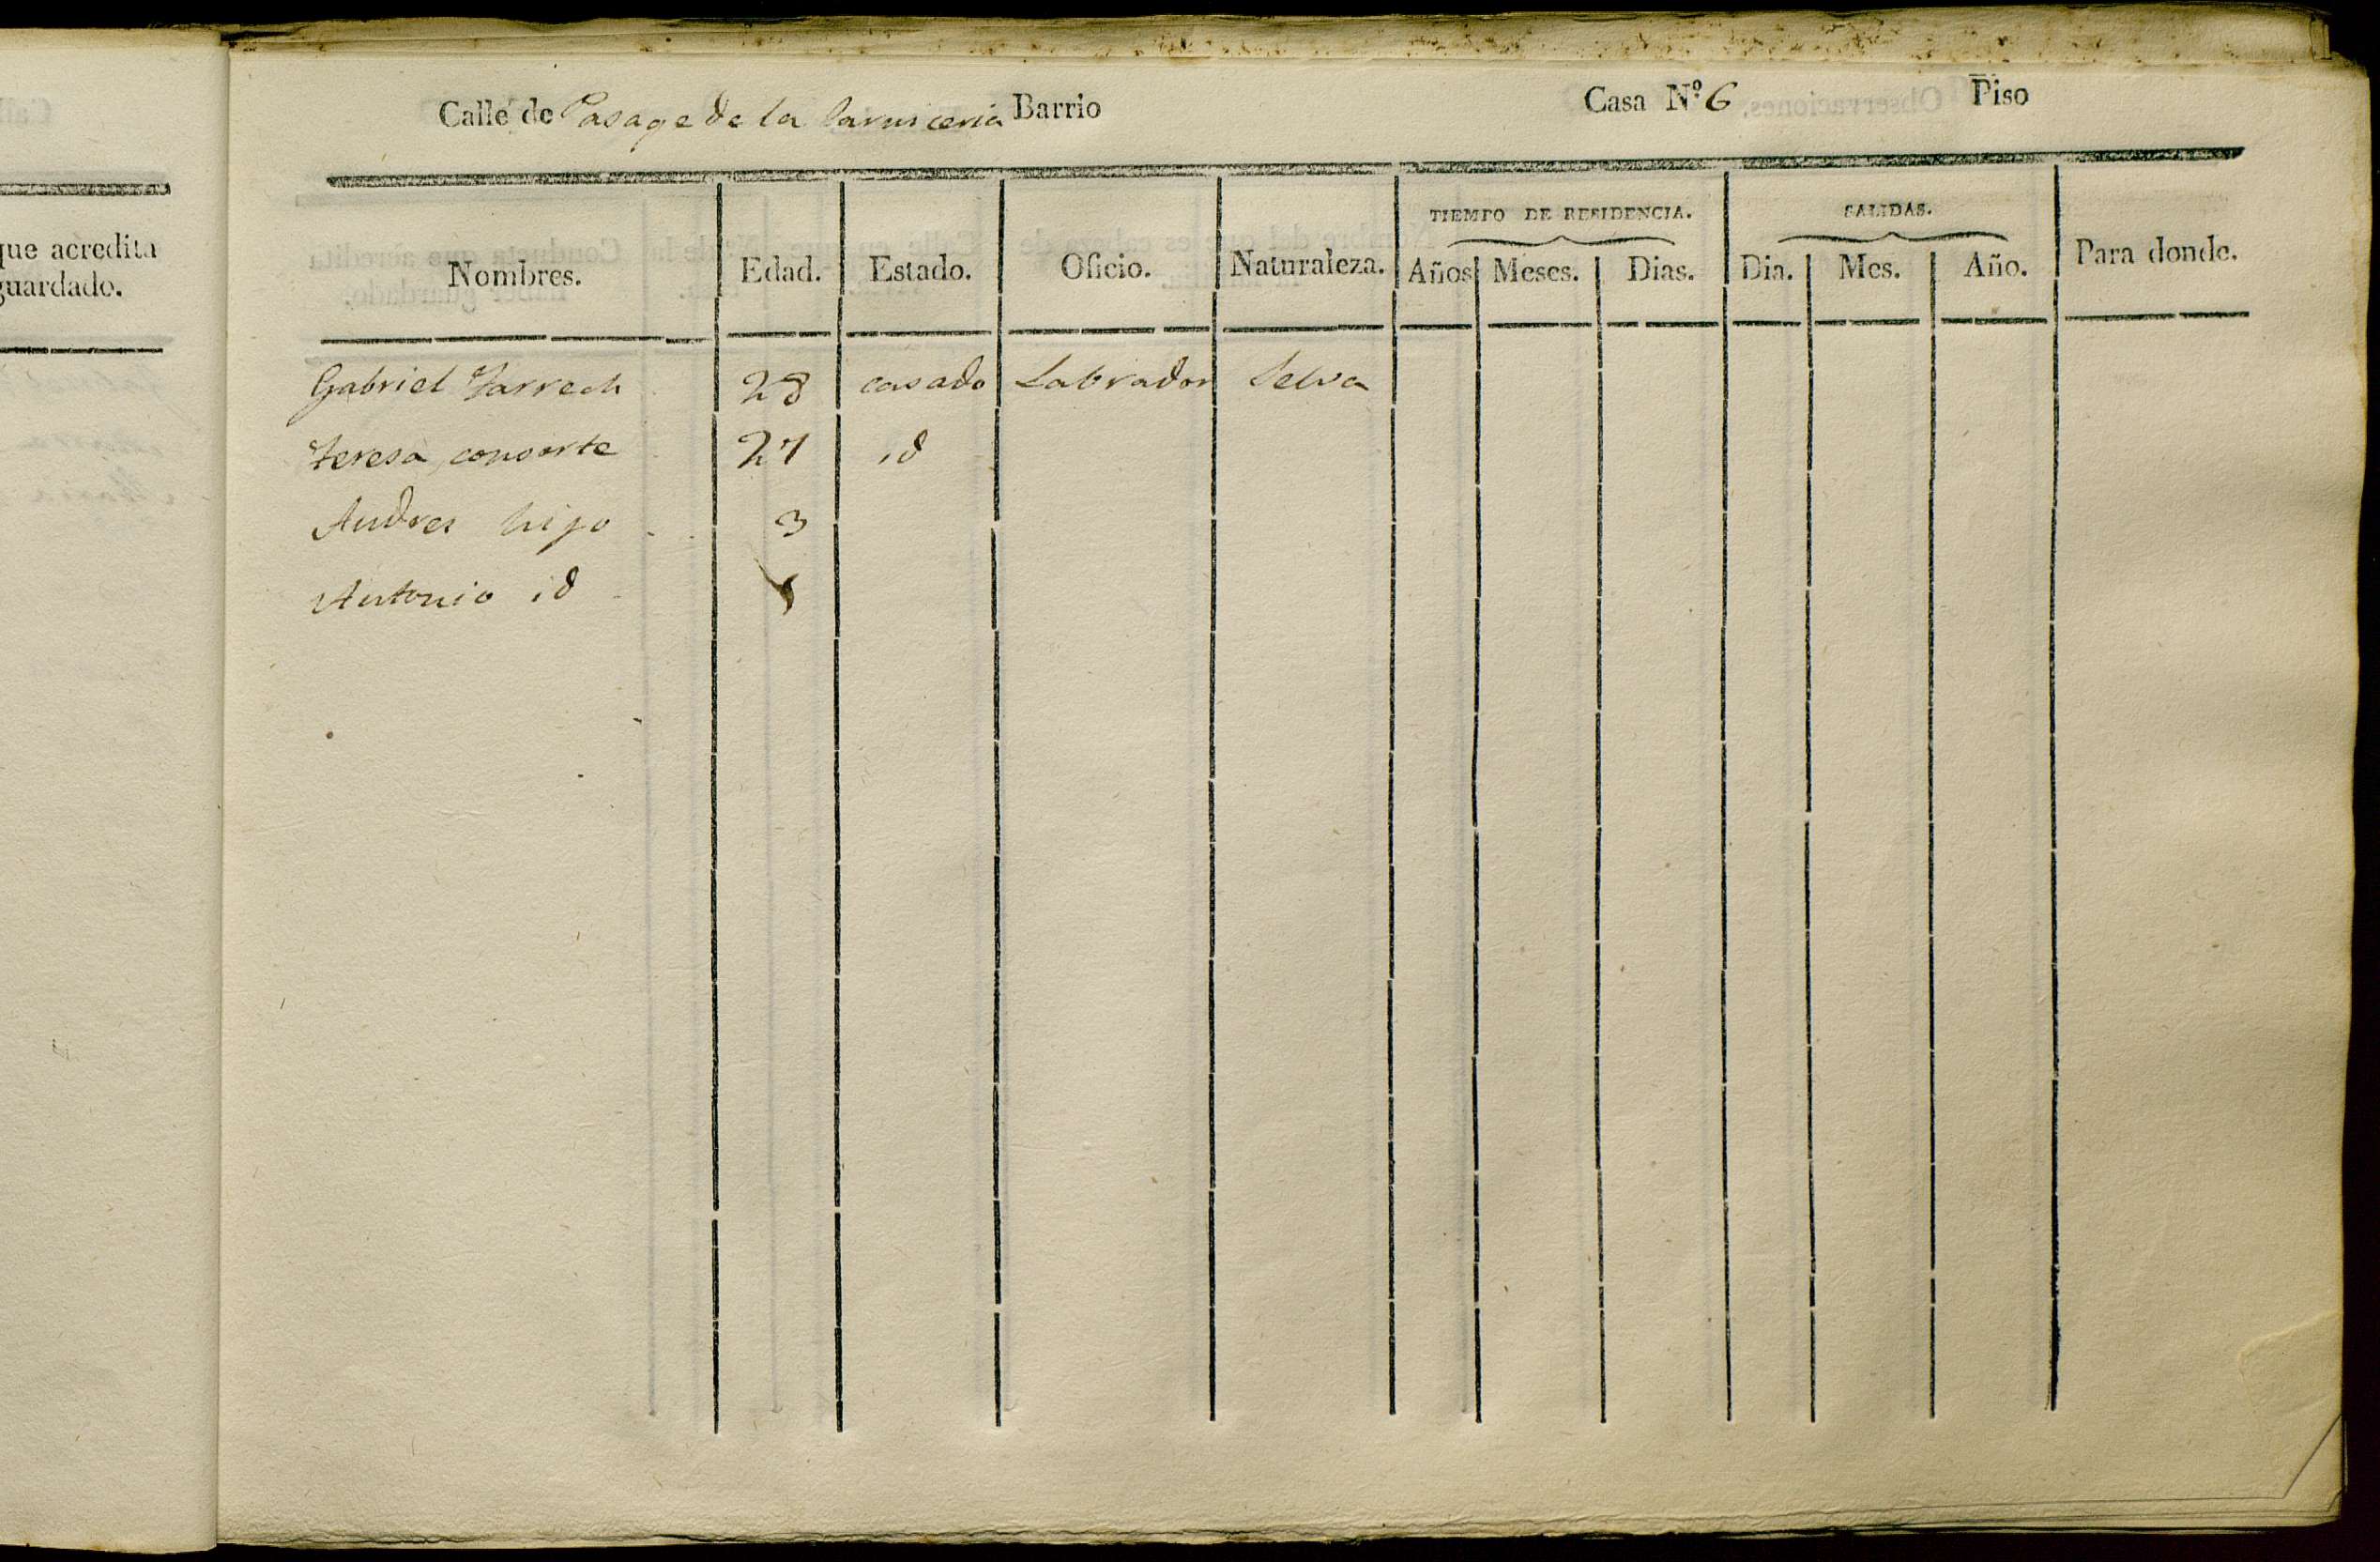 que acredita
guardado.
Calle de Pasage de la Carniceria Barrio Casa Nº 6 Piso
TIEMPO DE RESIDENCIA. SALIDAS.
Nombres. Edad. Estado. Oficio. Naturaleza. Años Meses. Dias. Dia. Mes. Año. Para donde.
Gabriel 28 casado Labrador Selva
Teresa consorte 27 id
Andres hijo 3
Antonio id